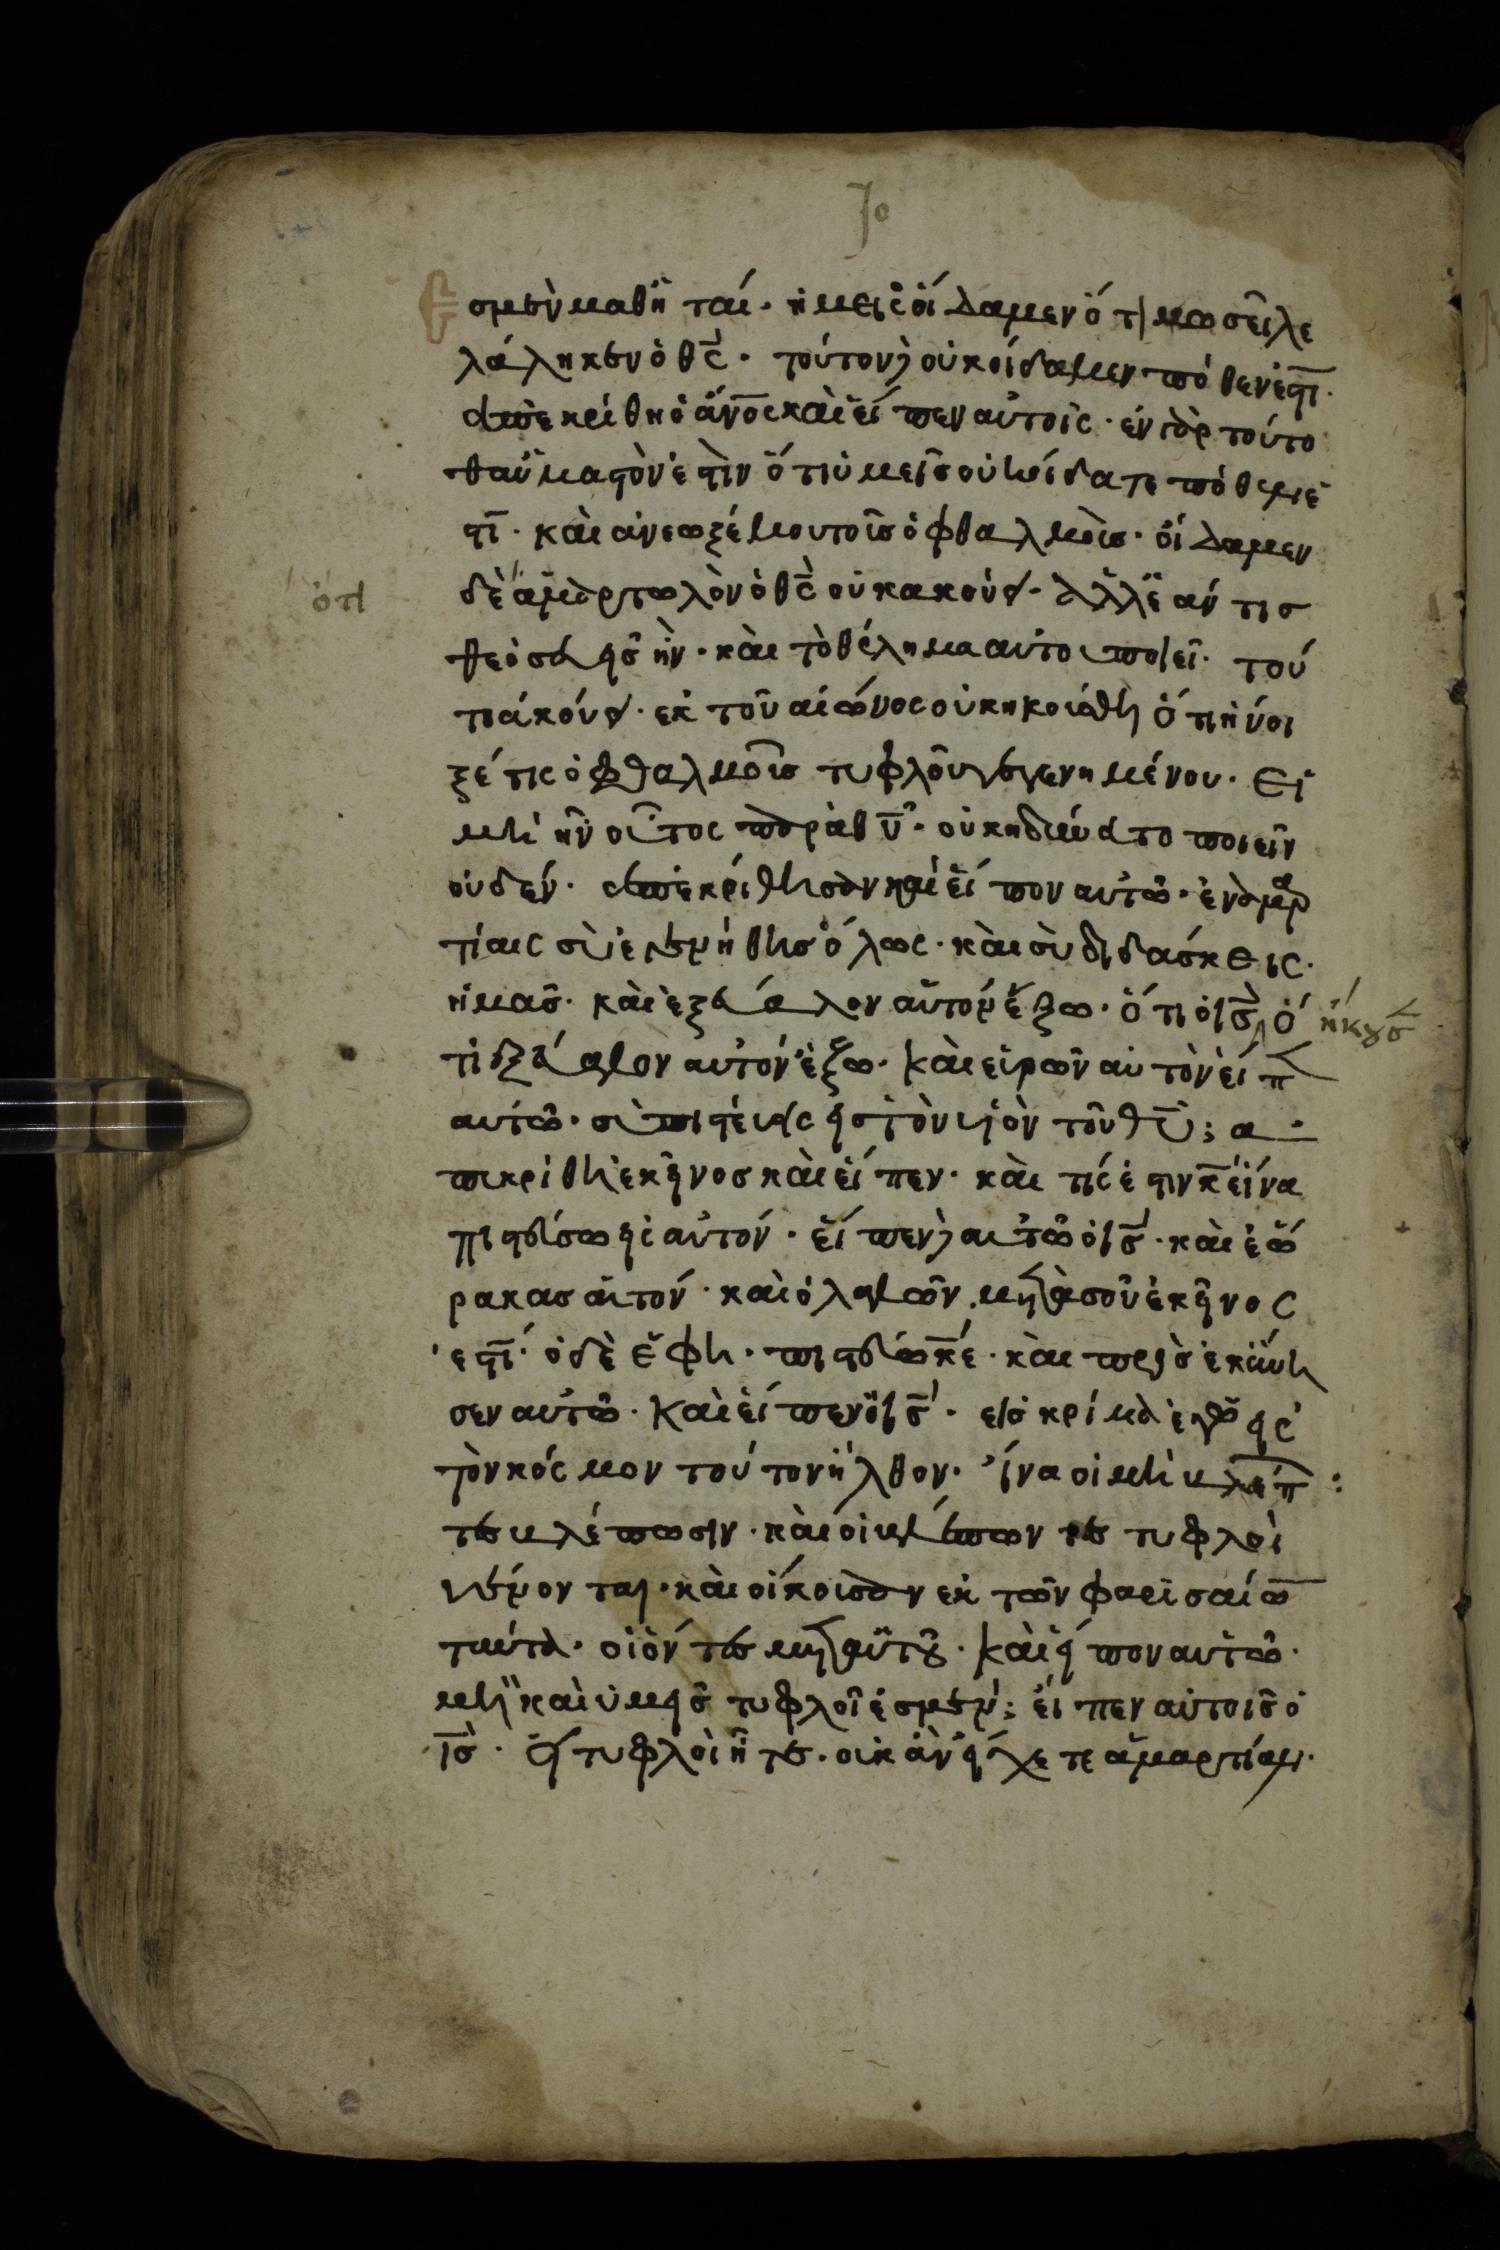 Jo
Ἐσμὲν μαθηταί· ἡμεῖς οἴδαμεν ὅτι μωσεῖ λε
λάληκεν ὁ θς· τοῦτον δ οὐκ οἴδαμεν πόθεν ἐστί·
ἀπεκρίθη ὁ ἄνος καὶ εἶπεν αὐτοῖς· ἐν γὰρ τούτο
θαῦμαστόν ἐστιν ὅτι ὑμεῖς οὐκ οἴδατε πόθεν ἐ
στί· καὶ ἀνεωξέ μου τοῖς ὀφθαλμοῖς· οἴδαμεν
ὅτι
δὲ ἁμαρτωλὸν ὁ θς οὐκ ἀκούει· ἀλλ ἐάν τις
θεοσεβεῖς ἦν· καὶ τὸ θέλημα αὐτοῦ ποιεῖ· τού
του ἀκούει· ἐκ τοῦ αἰῶνος οὐκ ἠκούσθη ὅτι ἤνοι
ξέ τις ὀφθαλμοῖς τυφλοῦ γεγενημένου· Εἰ
μὴ ἦν οὗτος παρὰ θυ· οὐκ ἠδύνατο ποιεῖν
οὐδέν· ἀπεκρίθησαν καὶ εἶπον αὐτῶ· ἐν ἁμαρ
τίαις σὺ ἐγενήθης ὅλως· καὶ σὺ διδάσκεις
ἡμᾶς· καὶ ἐξέβαλον αὐτόν ἔξω· ὅτι ὁ ις ὅ ἤκουσ
τι ἐξέβαλον αὐτόν ἔξω· καὶ εὑρῶν αὐτὸν εἶπ
αὐτῶ· σὺ πιστέυεις εἰς τὸν υἱὸν τοῦ θυ; α
πεκρίθη ἐκεῖνος καὶ εἶπεν· καὶ τίς ἐστιν κε ἵνα
πιστεύσω εἰς αὐτόν· εἶπεν δ αὐτῶ ὁ ις· καὶ ἑώ
ρακας αὐτόν· καὶ ὁ λαλῶν μετὰ σοῦ ἐκεῖνος
ἐστί· ὁ δὲ ἔφη· πιστεύω κέ· καὶ προσεκύνη
σεν αὐτῶ· καὶ εἶπεν ὁ ις· εἰς κρίμα ἐγὼ εἰς
τὸν κόσμον τοῦτον ἦλθον· ἵνα οἱ μὴ βλέπ
τες βλέπωσιν· καὶ οἱ βλέπων τες τυφλοὶ
γένονται· καὶ οἴκοισαν ἐκ τῶν φαρισαίων
ταύτα· οἱ όντες μετ αὐτοῦ· καὶ εἶπον αὐτῶ·
μὴ καὶ ὑμεῖς τυφλοῖ ἐσμέν; εἶπεν αὐτοῖς ὁ
ις· εἰ τυφλοὶ ἦτε· οὐκ ἂν εἴχετε ἁμαρτίαν·